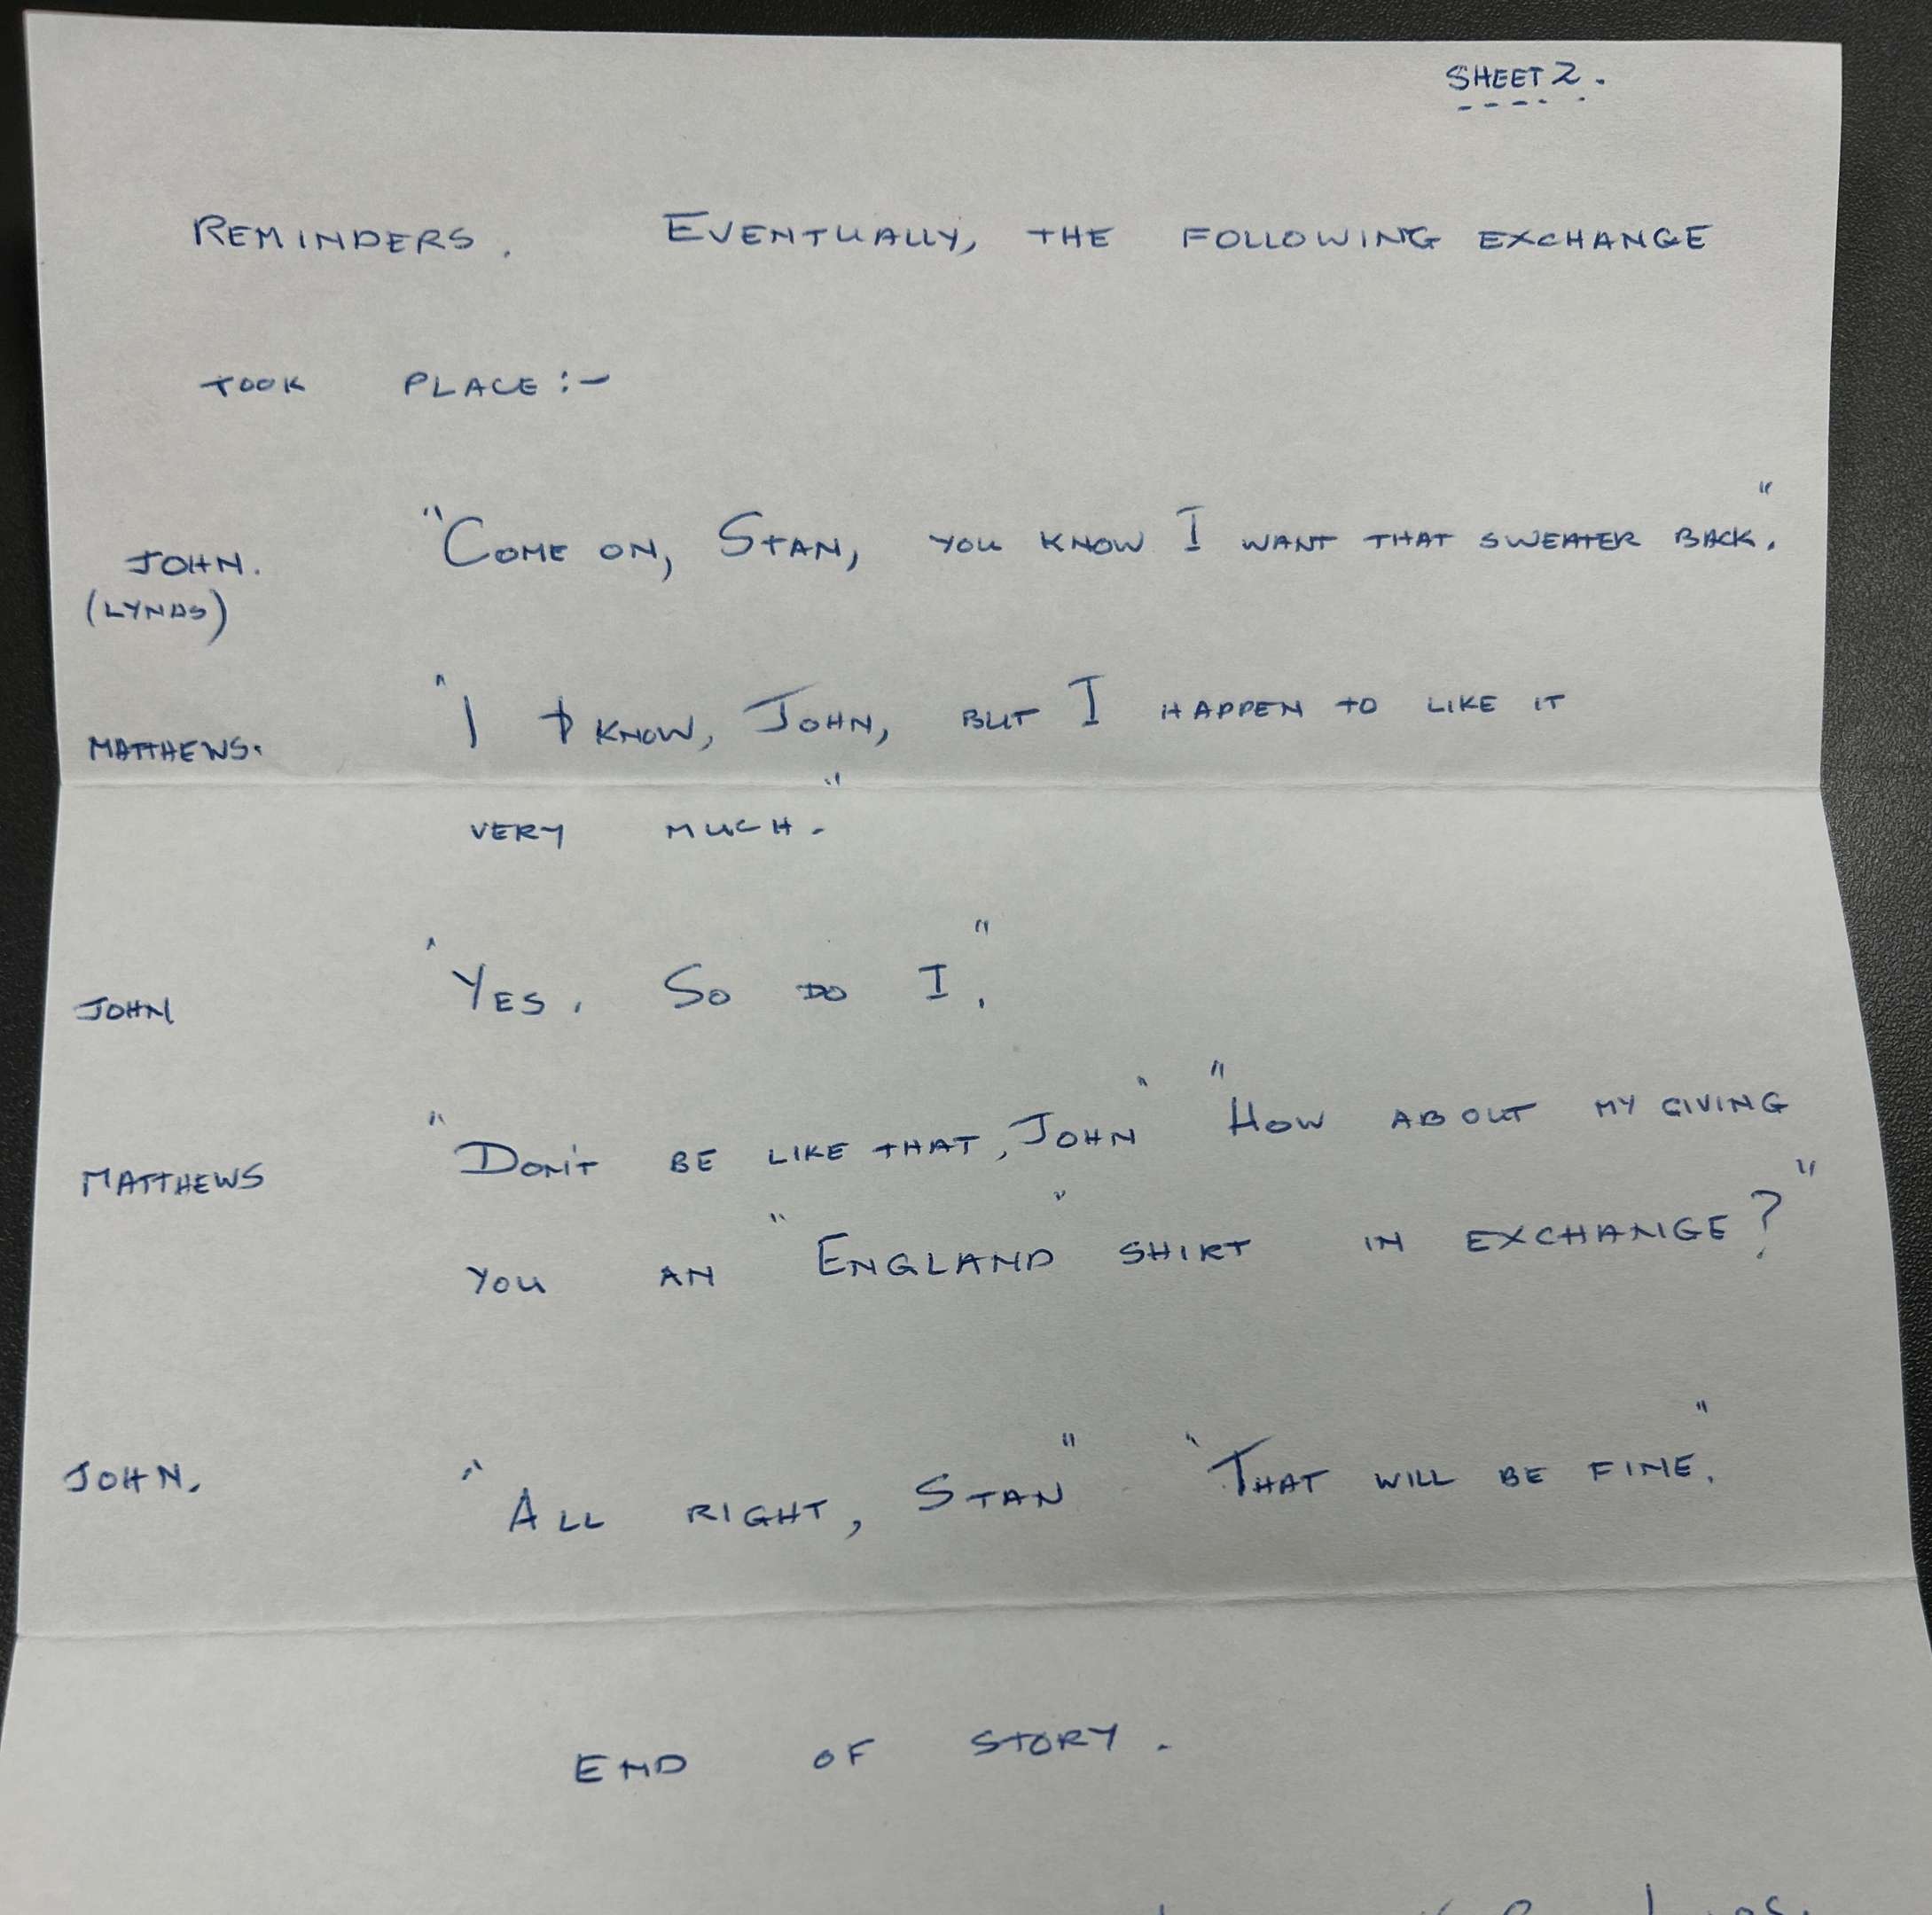 SHEET 2.
REMINDERS. EVENTUALLY, THE FOLLOWING EXCHANGE
TOOK PLACE :-
JOHN. "COME ON, STAN, YOU KNOW I WANT THAT SWEATER BACK."
(LYNAS)
MATTHEWS. "I KNOW, JOHN, BUT I HAPPEN TO LIKE IT
VERY MUCH."
JOHN "YES. SO DO I."
MATTHEWS "DON'T BE LIKE THAT, JOHN" "HOW ABOUT MY GIVING
YOU AN "ENGLAND" SHIRT IN EXCHANGE?"
JOHN. "ALL RIGHT, STAN" "THAT WILL BE FINE."
END OF STORY.